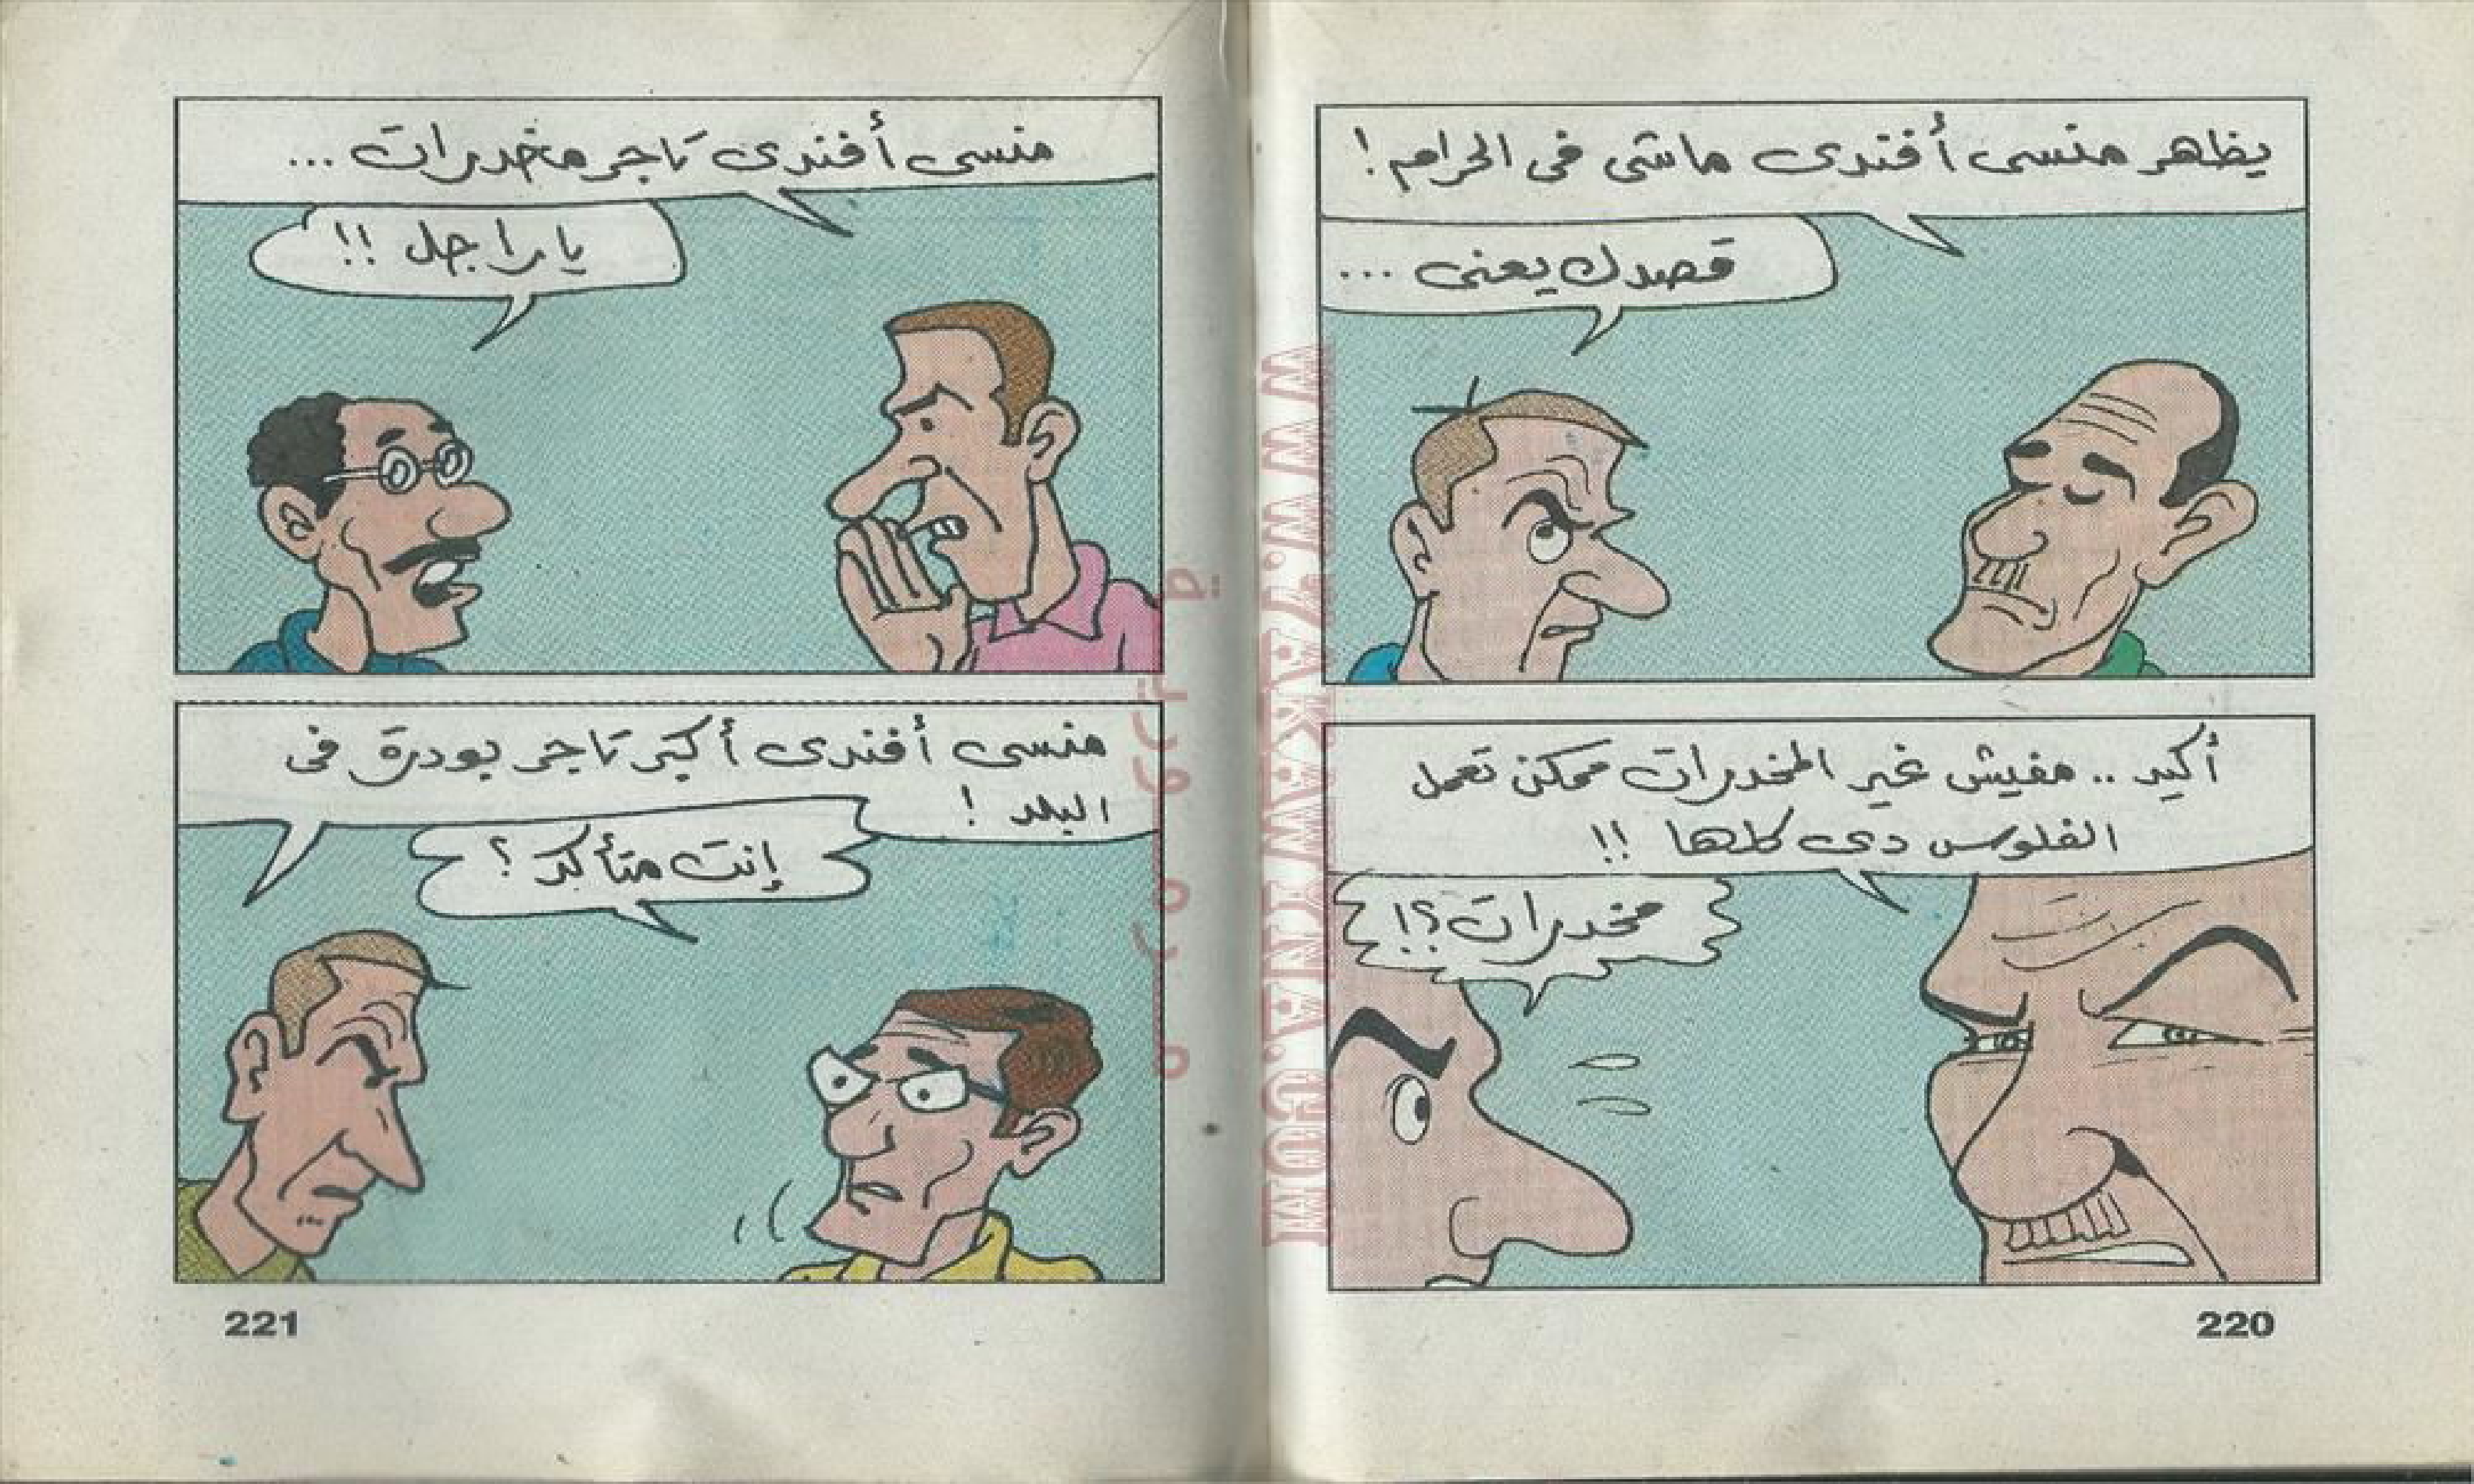 يظهر منسى أفندى ماشى فى الحرام !
قصدك يعنى ...
أكيد .. مفيش غير المخدرات ممكن تعمل
الفلوس دى كلها !!
مخدرات ؟!
220
منسى أفندى تاجر مخدرات ...
ياراجل !!
منسى أفندى أكبر تاجر بودرة فى
البلد !
إنت متأكد ؟
221
WWW.ARKAWKNA.COM